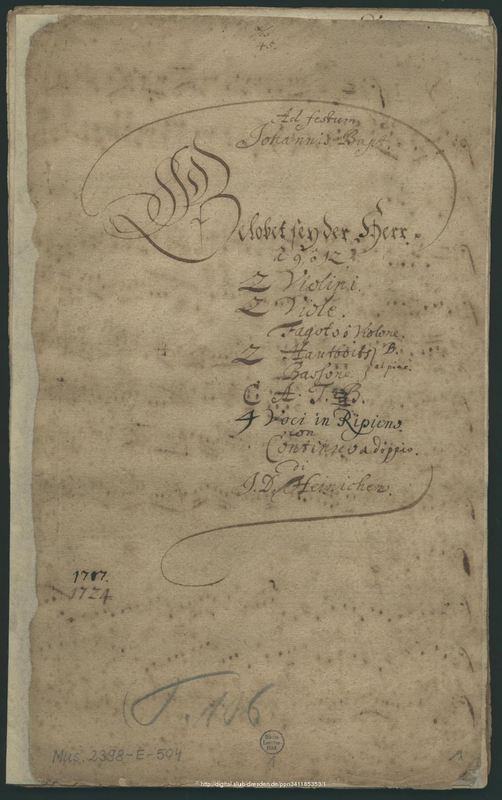 45.
Ad festum
Johannis Bapt.
Gelobet sey der Herr.
à 9. ô 12.
2 Violini.
2 Viole.
Fagoto ô Violone.
2 Hautbois
Bassone
al piac.
C. A. T. B.
4 Voci in Ripieno.
con
Continuo adippio.
di
J. D. Heinichen.
1717.
1724
Mus. 2398-E-504
1
1
http://digital.slub-dresden.de/ppn341185353/1